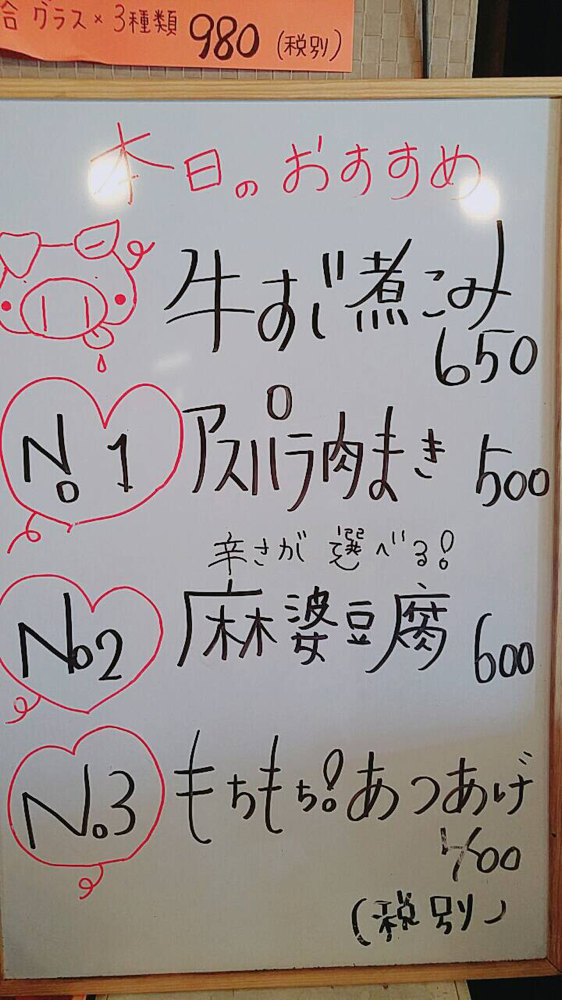 合 グラス×3種類 980 (税別)
本日のおすすめ
牛すじ煮こみ
650
No 1 アスパラ肉まき 500
辛さが選べる!
No2 麻婆豆腐 600
No.3 もちもち!あつあげ
400
(税別)